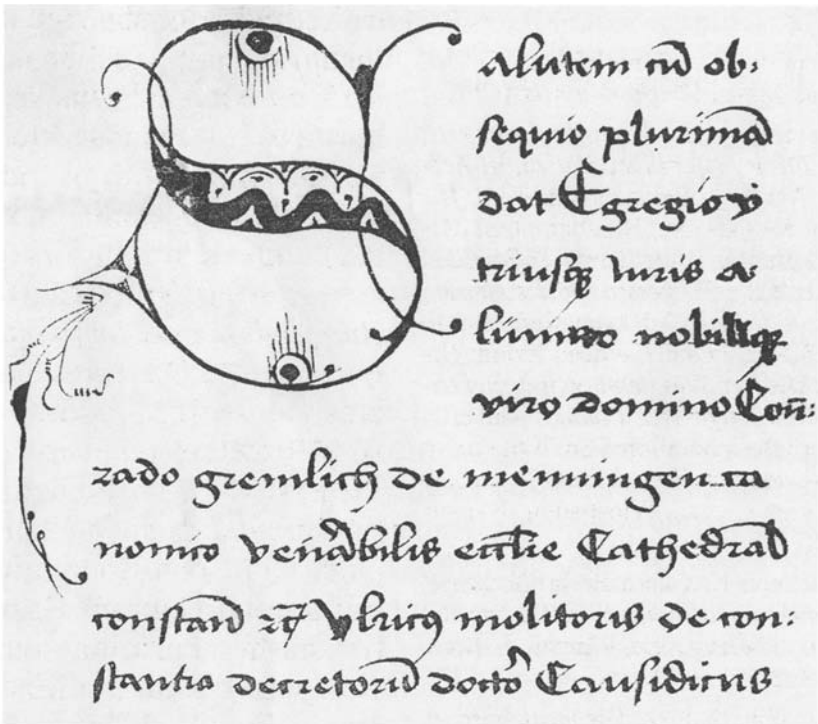 Salutem cū ob:
sequio plurimū
dat Egregio v
triusq iuris a
lumno nobiliq
viro domino Con:
rado gremlich de menningen ca
nonico venābilis ecclie Cathedrał
constancī ꝛc Vlricꝰ molitoris de con:
stantia decretorū doctor Causidicus